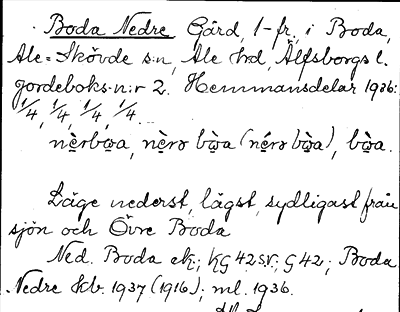 Boda Nedre Gård, 1-fr. i Boda,
Ale-Skövde s:n, Ale hd, Älfsborgs l.
Jordeboks-n:r 2. Hemmansdelar 1936:
1/4, 1/4, 1/4, 1/4.
nèrbωa, nèrə bὼa (nérə bὼa), bὼa.
Läge nederst, lägst, sydligast från
sjön och Övre Boda
Ned. Boda ek.; KG 42 SV.; G 42; Boda
Nedre kb. 1937 (1916); ml. 1936.